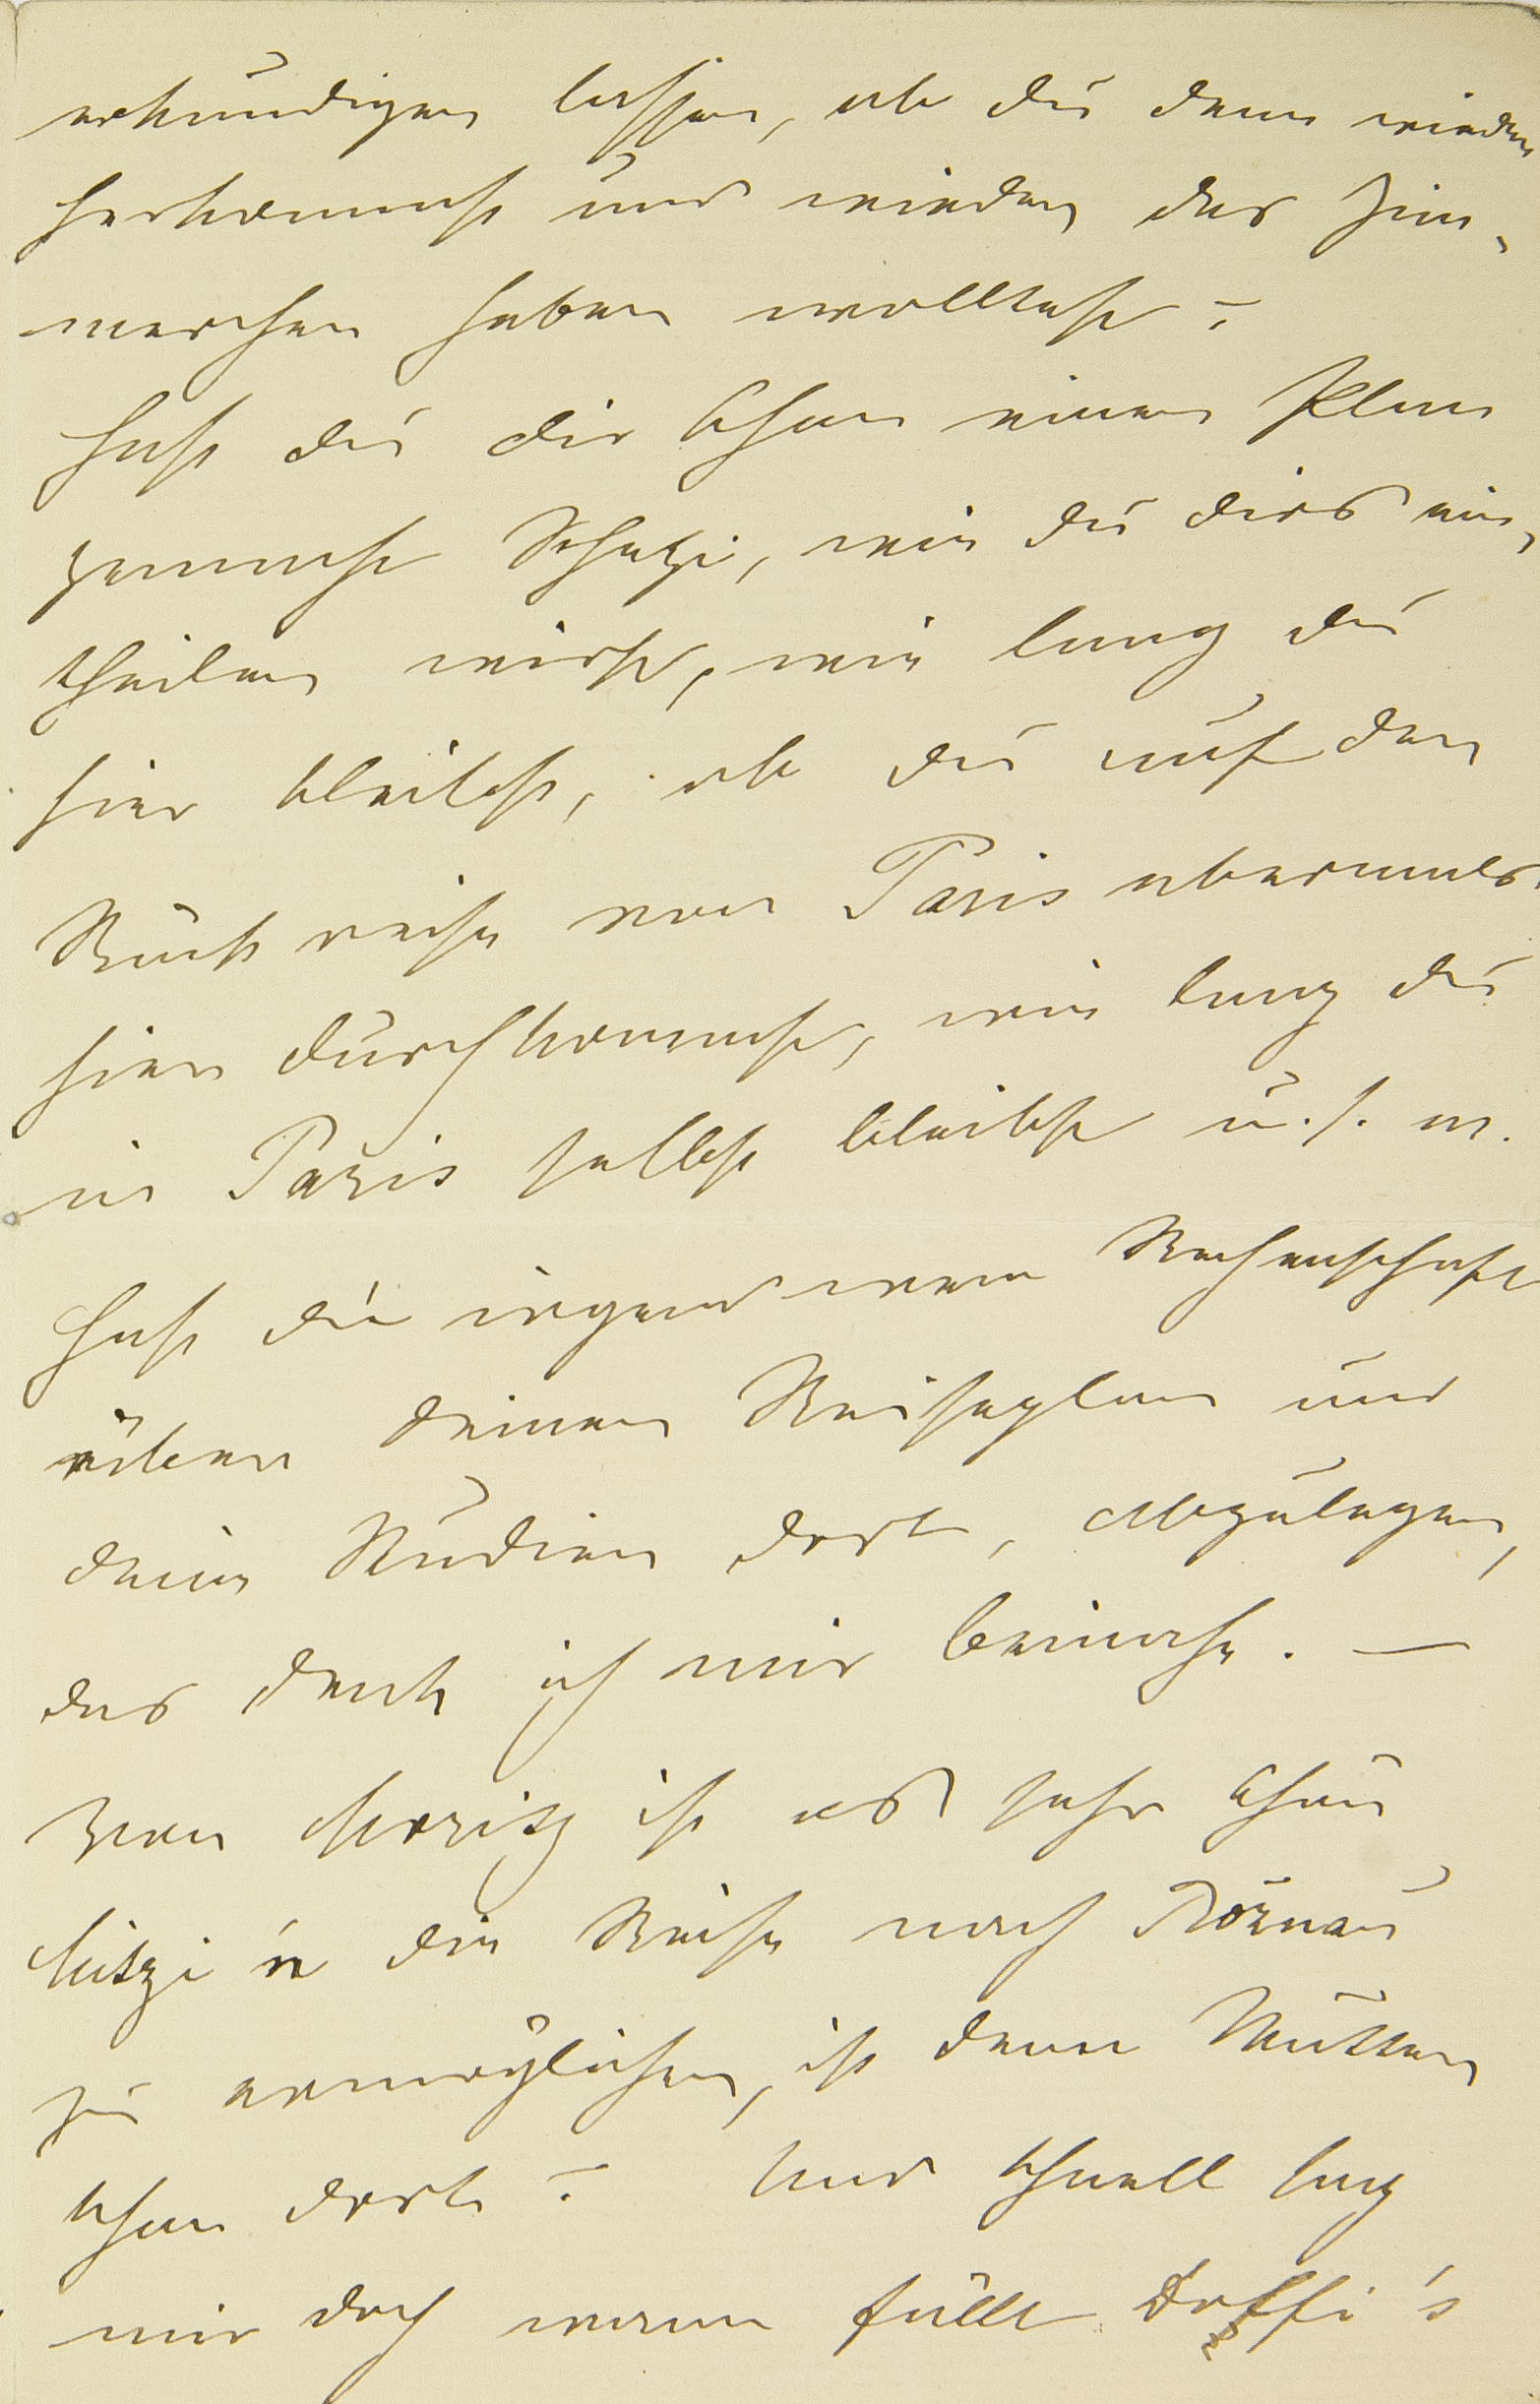 erkundigen lassen, ob du denn wieder
herkommst und wieder das Zim-
merchen haben wolltest?
Hast du dir schon einen Plan
gemacht Schatzi, wie du dies ein-
theilen wirst, wie lang du
hier bleibst, ob du auf der
Rück reise von Paris abermals
hier durchkommst, wie lang du
in Paris selbst bleibst u. s. w.
Hast du irgend wem Rechenschaft
über deinen Reiseplan und
deine Studien dort, abzulegen,
das denk ich mir beinahe. —
Von Moritz ist es sehr schön
Mitzi'n die Reise nach Rožnau
zu ermöglichen, ist denn Mutter
schon dort? Und schnell sag
mir doch wann fällt Dolfi's